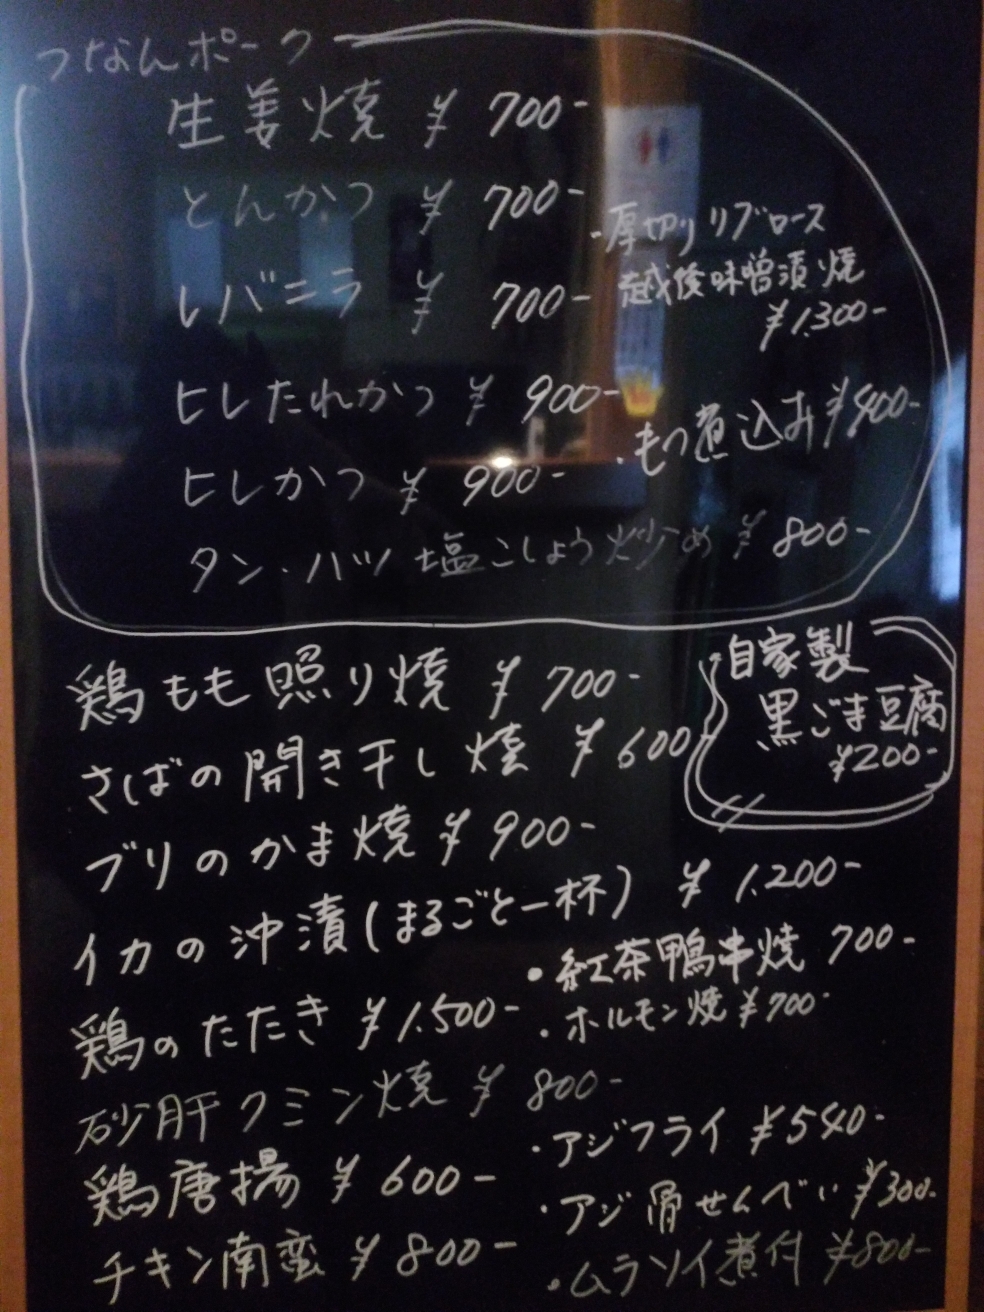 つなんポーク
生姜焼 ¥700-
とんかつ ¥700-
レバニラ ¥700-
・厚切りリブロース
越後味噌漬焼
¥1.300-
ヒレたれかつ ¥900-
・もつ煮込み ¥400-
ヒレかつ ¥900-
タン・ハツ 塩こしょう炒め ¥800-
鶏もも照り焼 ¥700-
自家製
黒ごま豆腐
¥200-
さばの開き干し焼 ¥600
ブリのかま焼 ¥900-
イカの沖漬(まるごと一杯) ¥1.200-
・紅茶鴨串焼 700-
鶏のたたき ¥1.500-
・ホルモン焼 ¥700-
砂肝クミン焼 ¥800-
・アジフライ ¥540-
鶏唐揚 ¥600-
・アジ骨せんべい ¥300-
チキン南蛮 ¥800-
・ムラソイ煮付 ¥800-